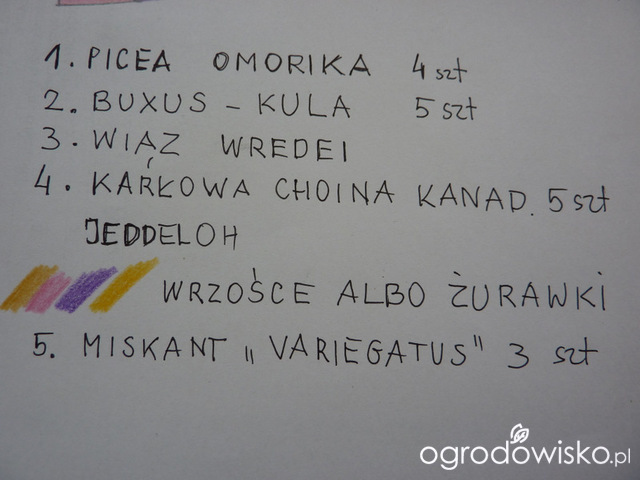 1. PICEA OMORIKA 4 szt
2. BUXUS - KULA 5 szt
3. WIĄZ WREDEI
4. KARŁOWA CHOINA KANAD. 5 szt
JEDDELOH
WRZOŚCE ALBO ŻURAWKI
5. MISKANT „VARIEGATUS" 3 szt
ogrodowisko.pl